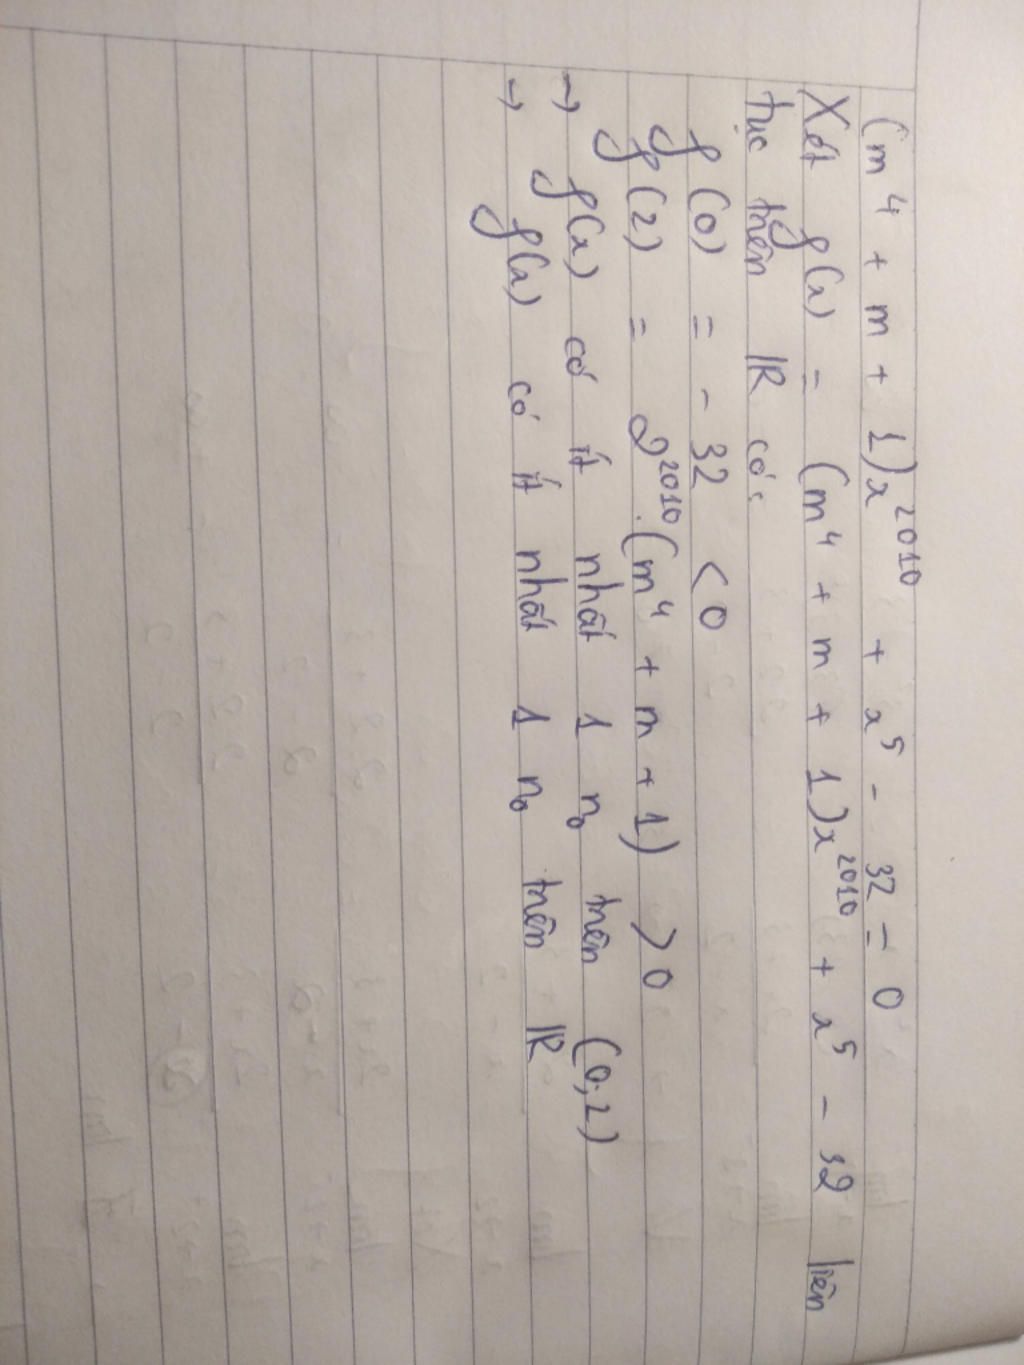 (m⁴ + m + 1)x²⁰¹⁰ + x⁵ - 32 = 0
Xét f(x) = (m⁴ + m + 1)x²⁰¹⁰ + x⁵ - 32 liên
tục trên ℝ có:
f(0) = - 32 < 0
f(2) = 2²⁰¹⁰.(m⁴ + m + 1) > 0
→ f(x) có ít nhất 1 n₀ trên (0;2)
→ f(x) có ít nhất 1 n₀ trên ℝ